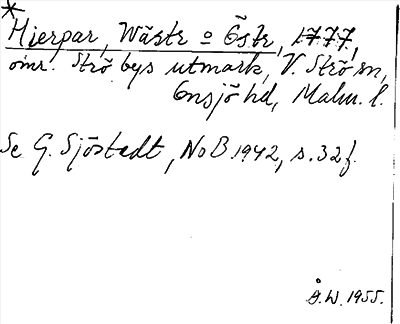 * Hierpar, Wästr o Östr, 1777,
omr. Strö bys utmark, V. Strö sn,
Onsjö hd, Malm. l.
Se G. Sjöstedt, NoB 1942, s. 32 f.
Å.W. 1955.